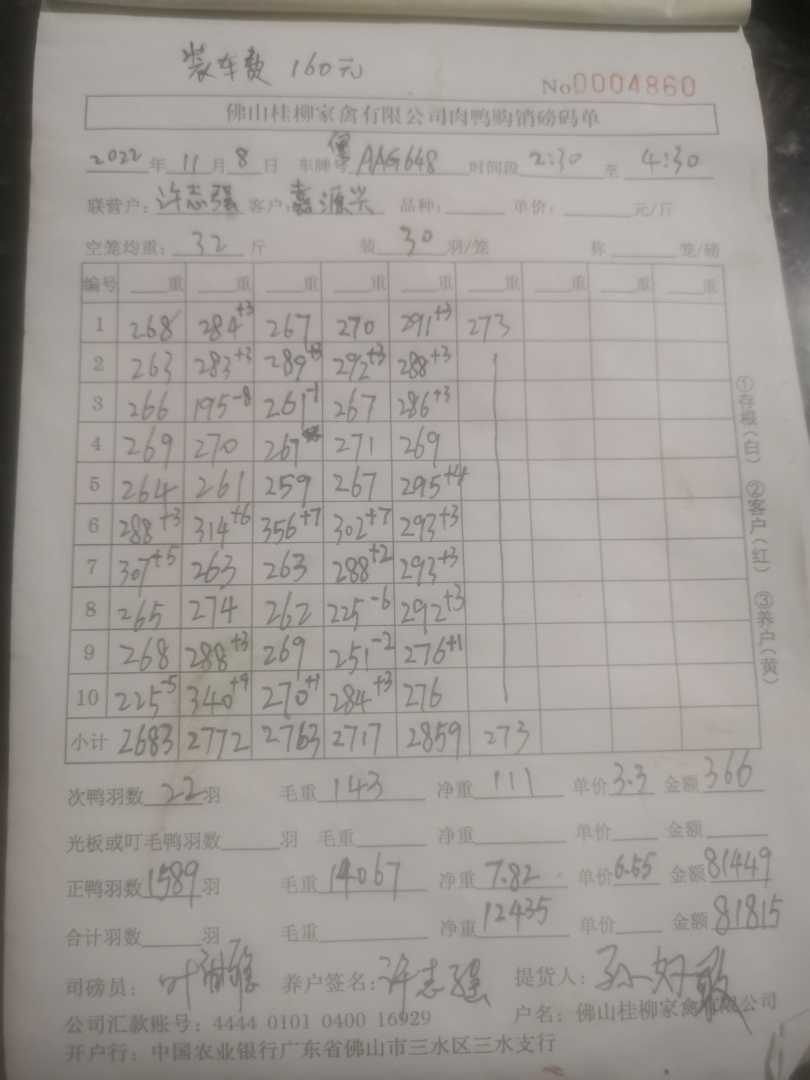 装车数 160元
No0004860
佛山桂柳家禽有限公司肉鸭购销磅码单
2022年11月8日 车牌号 AAG648 时间段 2:30 至 4:30
联营户:许志强 客户:嘉源兴 品种: 单价: 元/斤
空笼均重:32斤 装30羽/笼 称 笼/磅
编号 重 重 重 重 重 重 重 重 重
1 268 284+3 267 270 291+3 273
2 263 283+3 289+3 292+3 288+3
3 266 195-8 261-1 267 286+3
4 269 270 267 271 269
5 264 261 259 267 295+4
6 288+3 314+6 356+7 302+7 293+3
7 307+5 263 263 288+2 293+3
8 265 274 262 225-6 292+3
9 268 288+3 269 251-2 276+1
10 225-5 340+9 270+1 284+3 276
小计 2683 2772 2763 2717 2859 273
次鸭羽数22羽 毛重143 净重111 单价3.3 金额366
光板或叮毛鸭羽数 羽 毛重 净重 单价 金额
正鸭羽数1589羽 毛重14067 净重7.82 单价6.55 金额81449
合计羽数 羽 毛重 净重12435 单价 金额81815
司磅员:叶 养户签名:许志强 提货人:孙好敢
公司汇款账号:4444 0101 0400 16929 户名:佛山桂柳家禽有限公司
开户行:中国农业银行广东省佛山市三水区三水支行
①存根(白) ②客户(红) ③养户(黄)